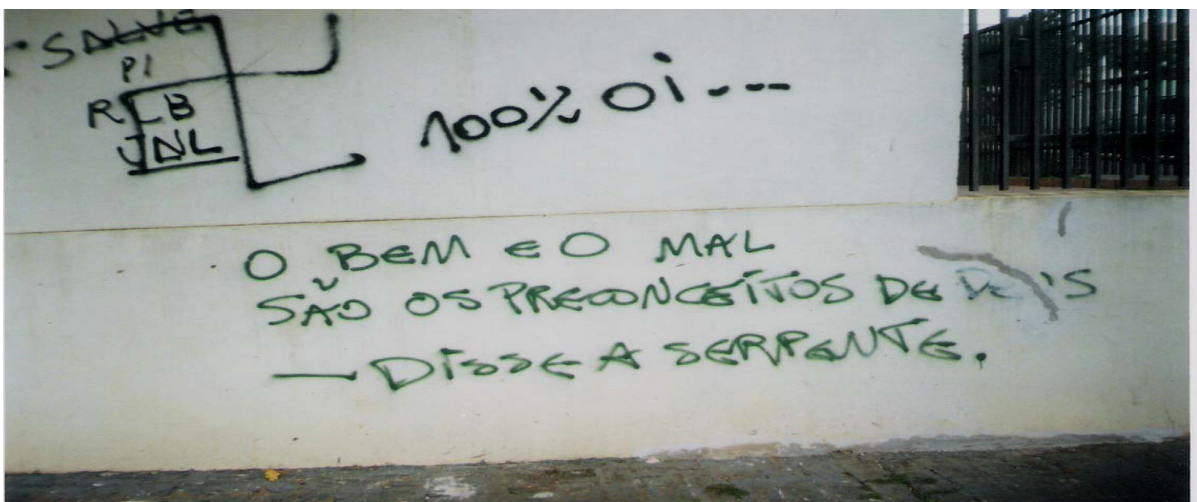 SALVE
P1
RLB
JNL
100% Oi...
O BEM E O MAL
SÃO OS PRECONCEITOS DE
— DISSE A SERPENTE.